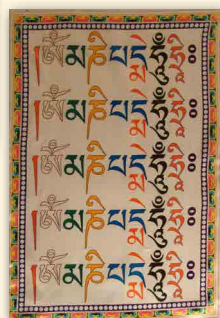 །ཨོཾམཎིཔདྨེཧཱུྃཧྲཱིཿ
།ཨོཾམཎིཔདྨེཧཱུྃཧྲཱིཿ
།ཨོཾམཎིཔདྨེཧཱུྃཧྲཱིཿ
།ཨོཾམཎིཔདྨེཧཱུྃཧྲཱིཿ